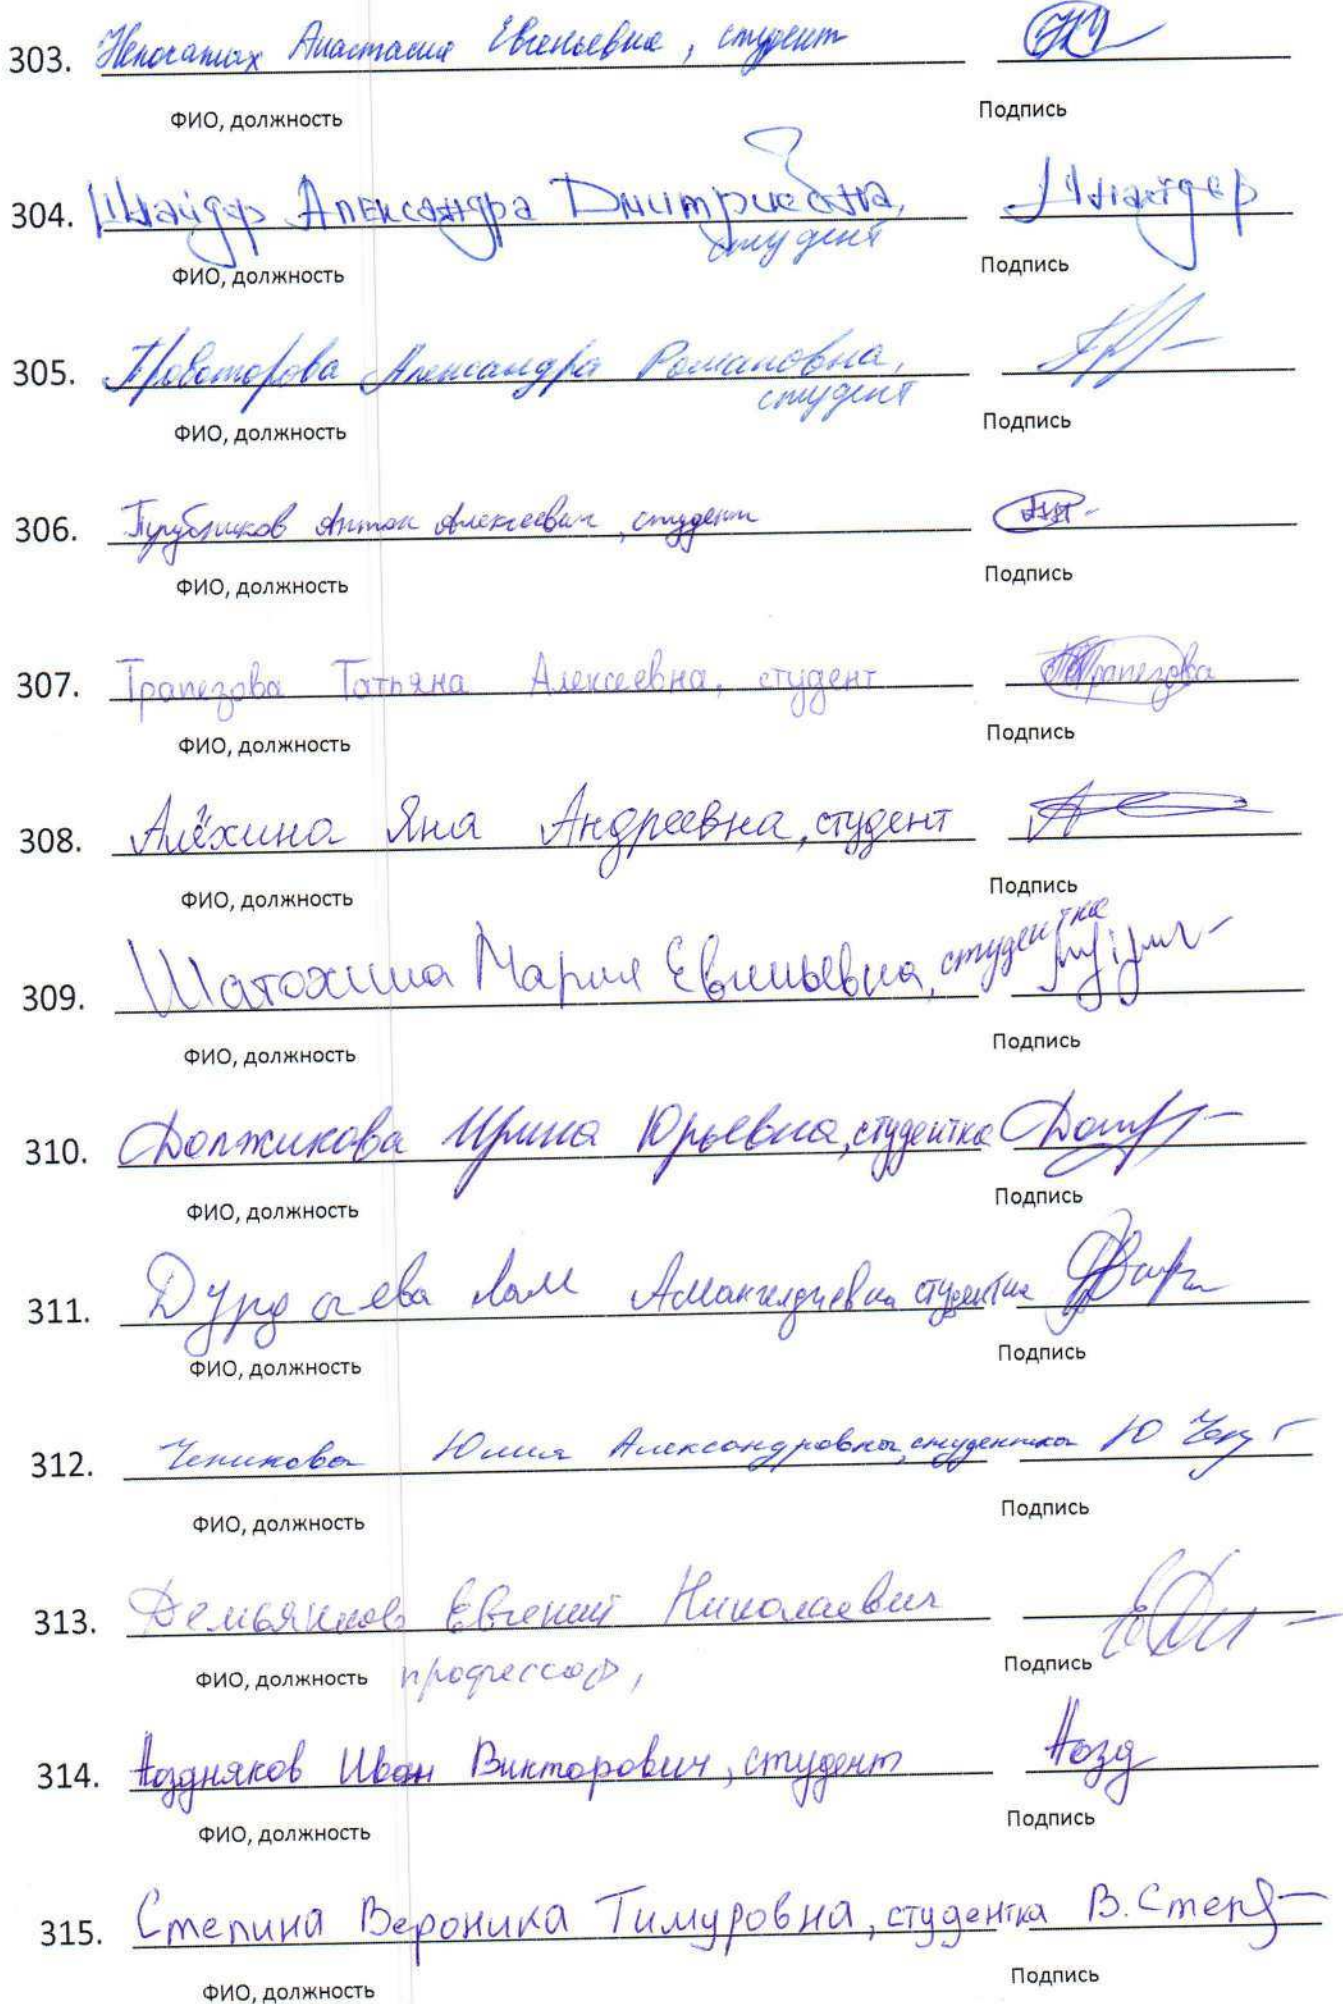 303. Непочатых Анастасия Евгеньевна, студент
ФИО, должность Подпись
304. Шнайдер Александра Дмитриевна, Шнайдер
студент
ФИО, должность Подпись
305. Провоторова Александра Романовна,
студент
ФИО, должность Подпись
306. Антон Алексеевич, студент
ФИО, должность Подпись
307. Трапезова Татьяна Алексеевна, студент Трапезова
ФИО, должность Подпись
308. Алёхина Яна Андреевна, студент
ФИО, должность Подпись
309. Шатохина Мария Евгеньевна, студентка
ФИО, должность Подпись
310. Должикова Ирина Юрьевна, студентка
ФИО, должность Подпись
311. Амангелдиевна студентка
ФИО, должность Подпись
312. Чепикова Юлия Александровна, студентка
ФИО, должность Подпись
313. Демьянков Евгений Николаевич
ФИО, должность профессор, Подпись
314. Поздняков Иван Викторович, студент Позд
ФИО, должность Подпись
315. Степина Вероника Тимуровна, студентка В. Степ
ФИО, должность Подпись